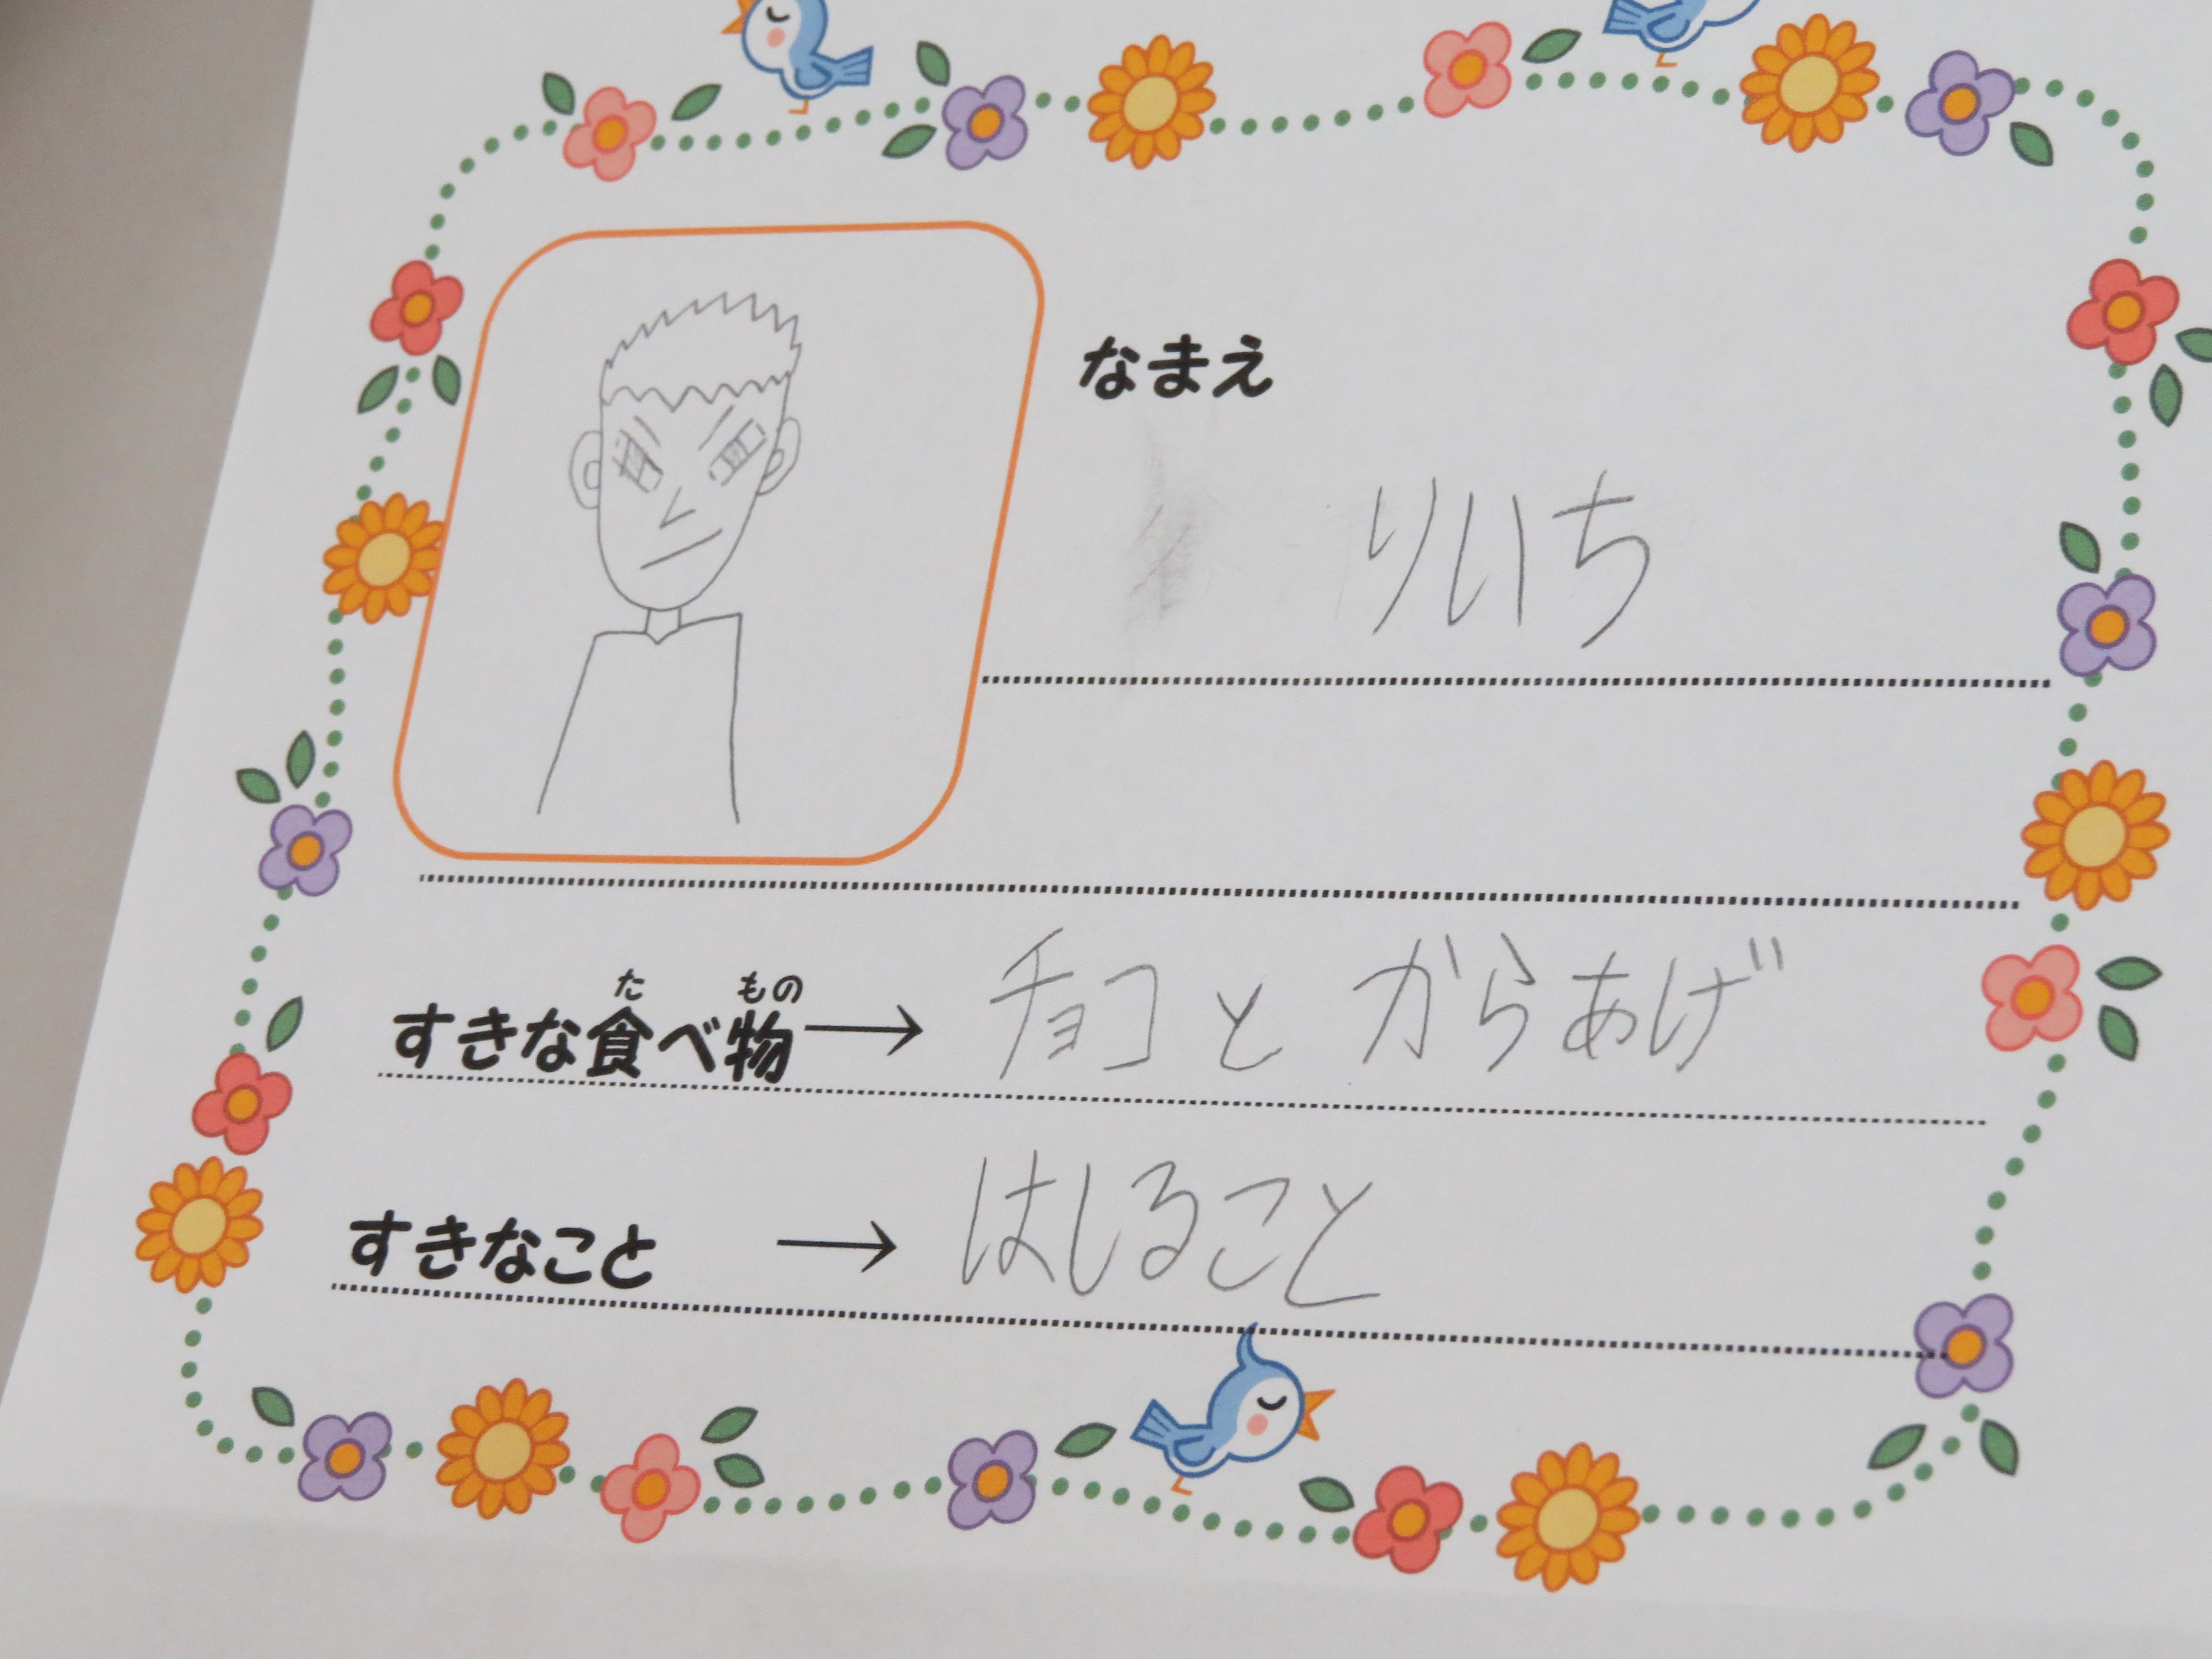 なまえ
りいち
すきな食べ物→ チョコと からあげ
たもの
すきなこと → はしること